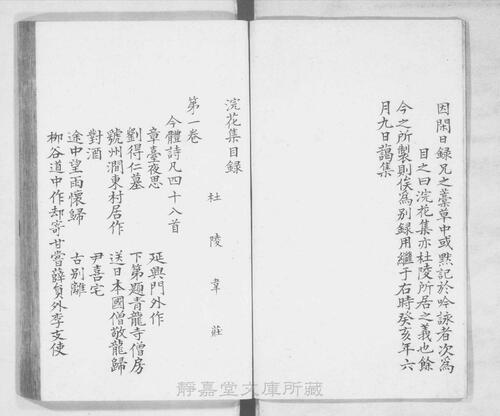 因閑日錄兄之藁草中或黙記於吟詠者次為
目之曰浣花集亦杜陵所居之義也餘
今之所製則俟為別録用繼于右時癸亥年六
月九日藹集
浣花集目録
杜陵韋莊
第一卷
今體詩凡四十八首
章臺夜思
延興門外作
劉得仁墓
下第題青龍寺僧房
虢州澗東村居作
送日本國僧敬龍歸
對酒
尹喜宅
途中望雨懷歸
古別離
柳谷道中作却寄甘嘗薛員外李支使
靜嘉堂文庫所藏